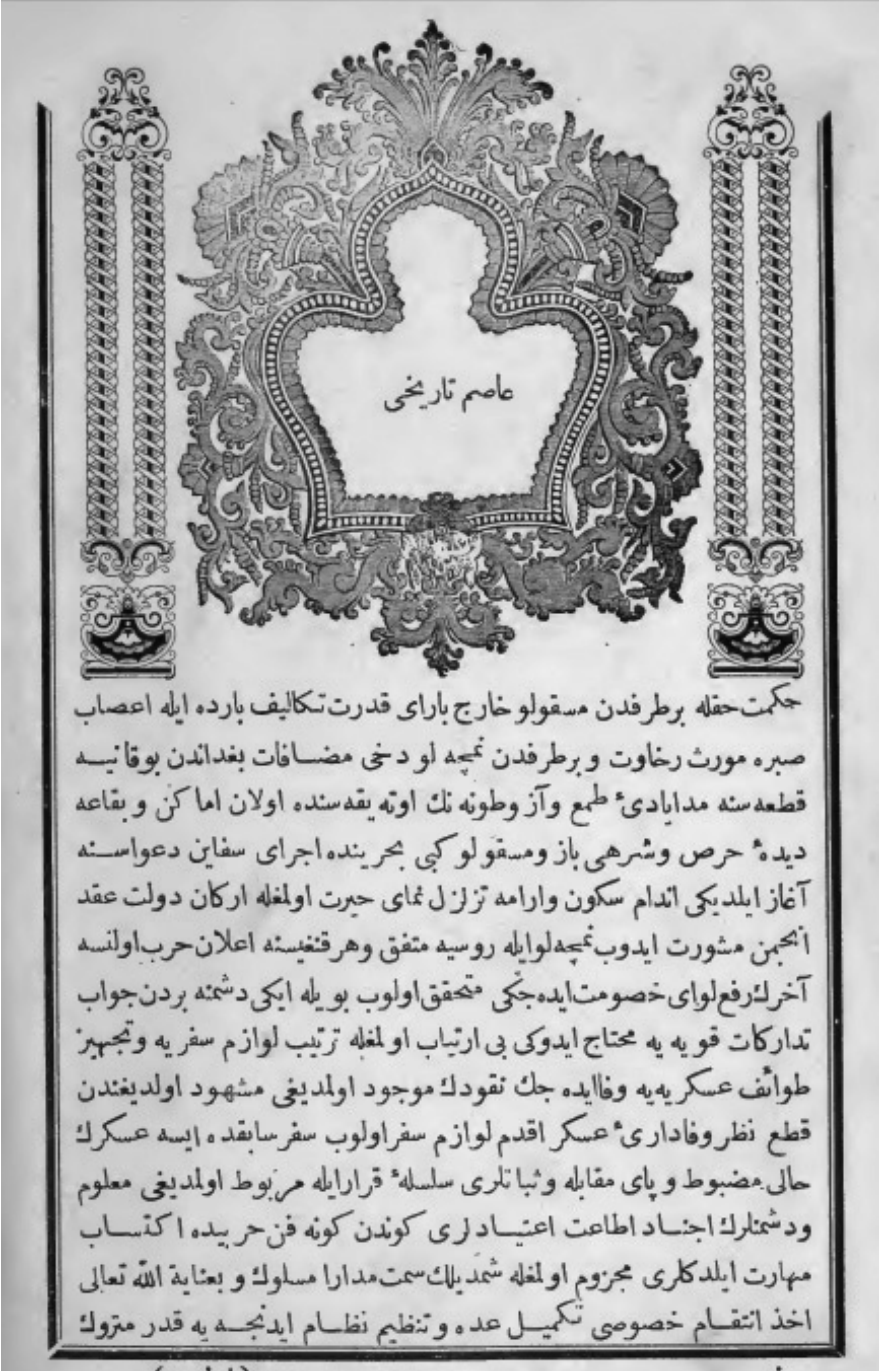 عاصم تاريخى
حكمت حقله برطرفدن مسقولو خارج ياراى قدرت تكاليف بارده ايله اعصاب
صبره مورث رخاوت و برطرفدن نمچه لو دخى مضافات بغداندن بوقانيه
قطعه سنه مداياديء طمع وآز وطونه نك اوته يقه سنده اولان اماكن و بقاعه
ديدهء حرص وشرهى باز ومسقولو كبى بحرينده اجراى سفاين دعواسنه
آغاز ايلديكى اندام سكون وارامه تزلزل نماى حيرت اولمغله اركان دولت عقد
انجمن مشورت ايدوب نمچه لوايله روسيه متفق وهرقنغيسنه اعلان حرب اولنسه
آخرك رفع لواى خصومت ايده جكى متحقق اولوب بويله ايكى دشمنه بردن جواب
تداركات قويه يه محتاج ايدوكى بى ارتياب اولمغله ترتيب لوازم سفريه وتجهيز
طوائف عسكريه يه وفاايده جك نقودك موجود اولمديغى مشهود اولديغندن
قطع نظر وفادارىء عسكر اقدم لوازم سفر اولوب سفر سابقده ايسه عسكرك
حالى مضبوط و پاى مقابله وثباتلرى سلسلهء قرارايله مربوط اولمديغى معلوم
ودشمنلرك اجناد اطاعت اعتيادلرى كوندن كونه فن حربيده اكتساب
مهارت ايلدكلرى مجزوم اولمغله شمديلك سمت مدارا مسلوك و بعناية الله تعالى
اخذ انتقام خصوصى تكميل عده وتنظيم نظام ايدنجه يه قدر متروك